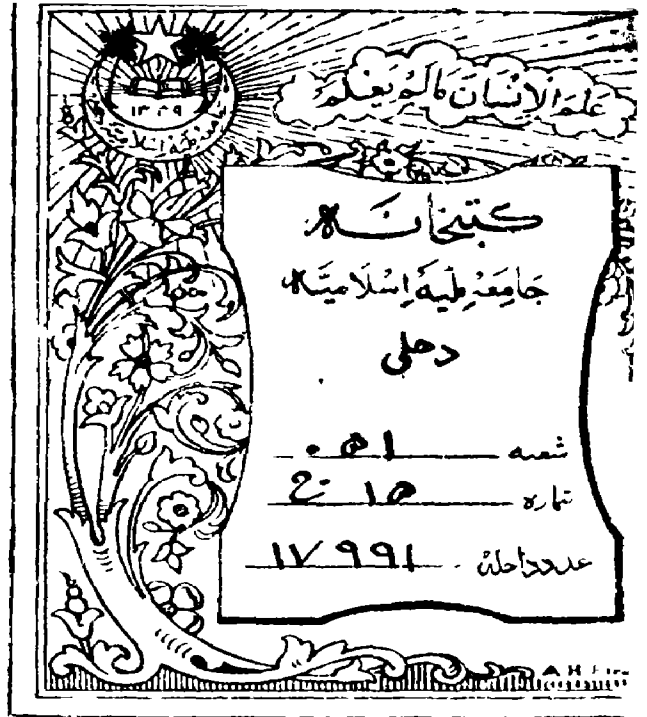 عَلَّمَ الْإِنْسَانَ مَالَمْ يَعْلَمْ
۱۳۳۹
کتبخانہ
جَامِعَہ مِلّیَہ اِسْلَامیَّہ
دهلی
شعبہ ۰۵۱
شمارہ ۱۵ ج
عدد داخلہ ۱۷۹۹۱
A H